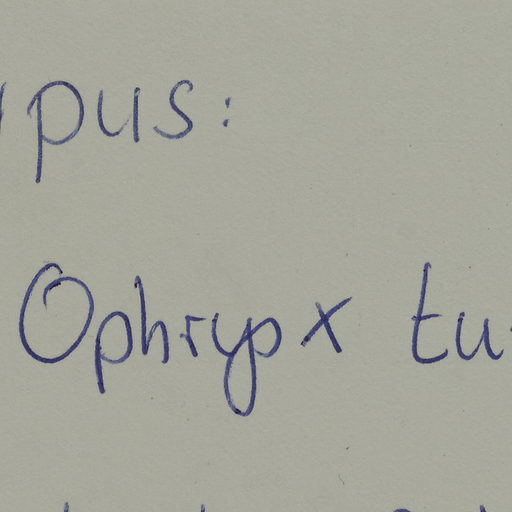 pus:
Ophrys x tu